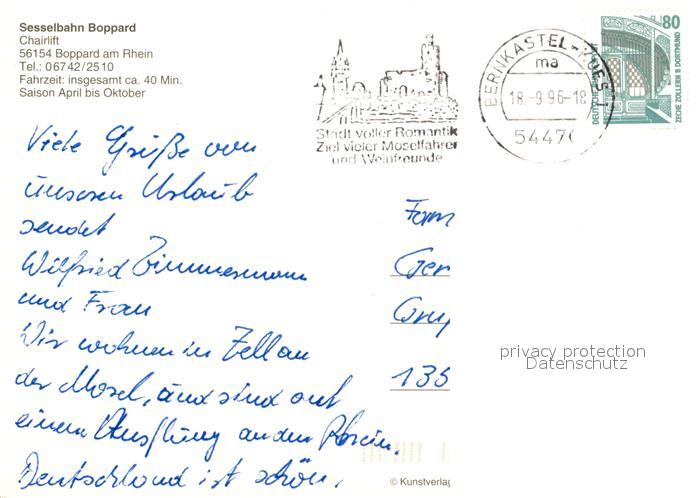 Sesselbahn Boppard
Chairlift
56154 Boppard am Rhein
Tel.: 06742/2510
Fahrzeit: insgesamt ca. 40 Min.
Saison April bis Oktober
Stadt voller Romantik
Ziel vieler Moselfahrer
und Weinfreunde
BERNKASTEL-KUES 1
ma
18.-9.96-18
5447
80
DEUTSCHE BUNDESPOST
ZECHE ZOLLERN II DORTMUND
Viele Grüße von
unseren Urlaub
sendet
Wilfried Zimmermann
und Frau
Wir wohnen in Zell an
der Mosel, und sind auf
einem Ausflung an den Rhein.
Deutschland ist schön.
Fam
Ger
135
privacy protection
Datenschutz
© Kunstverlag